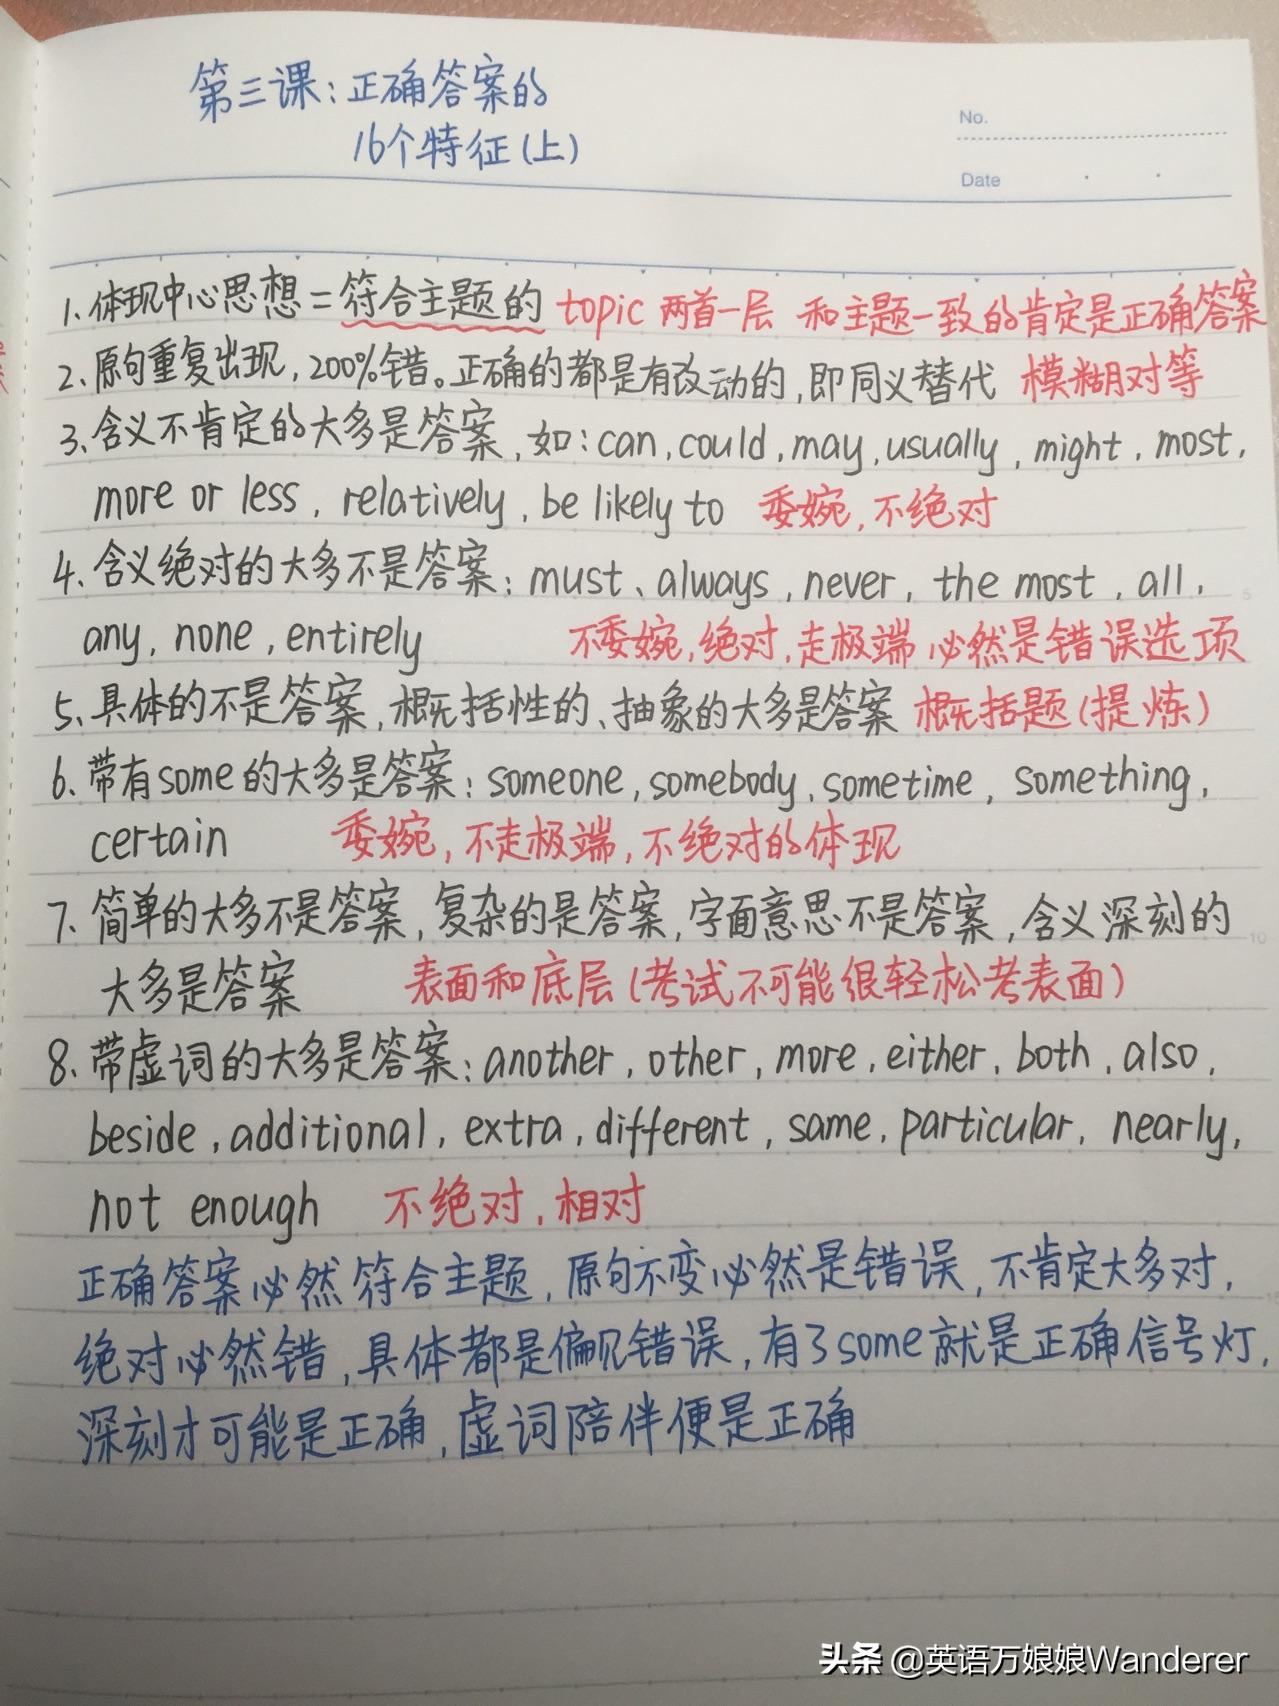 第三课:正确答案的
16个特征(上)
No.
Date
1.体现中心思想=符合主题的 topic 两首一层 和主题一致的肯定是正确答案
2.原句重复出现,200%错。正确的都是有改动的,即同义替代 模糊对等
3.含义不肯定的大多是答案,如:can,could,may,usually,might,most,
more or less,relatively,be likely to 委婉,不绝对
4.含义绝对的大多不是答案:must、always,never,the most,all,
any,none,entirely 不委婉,绝对,走极端 必然是错误选项
5.具体的不是答案,概括性的、抽象的大多是答案 概括题(提炼)
6.带有some的大多是答案:someone,somebody,sometime,something,
certain 委婉,不走极端,不绝对的体现
7.简单的大多不是答案,复杂的是答案,字面意思不是答案,含义深刻的
大多是答案 表面和底层(考试不可能很轻松考表面)
8.带虚词的大多是答案:another,other,more,either,both,also,
beside,additional,extra,different,same,particular,nearly,
not enough 不绝对,相对
正确答案必然符合主题,原句不变必然是错误,不肯定大多对,
绝对必然错,具体都是偏见错误,有了some就是正确信号灯,
深刻才可能是正确,虚词陪伴便是正确
5
10
15
头条 @英语万娘娘Wanderer